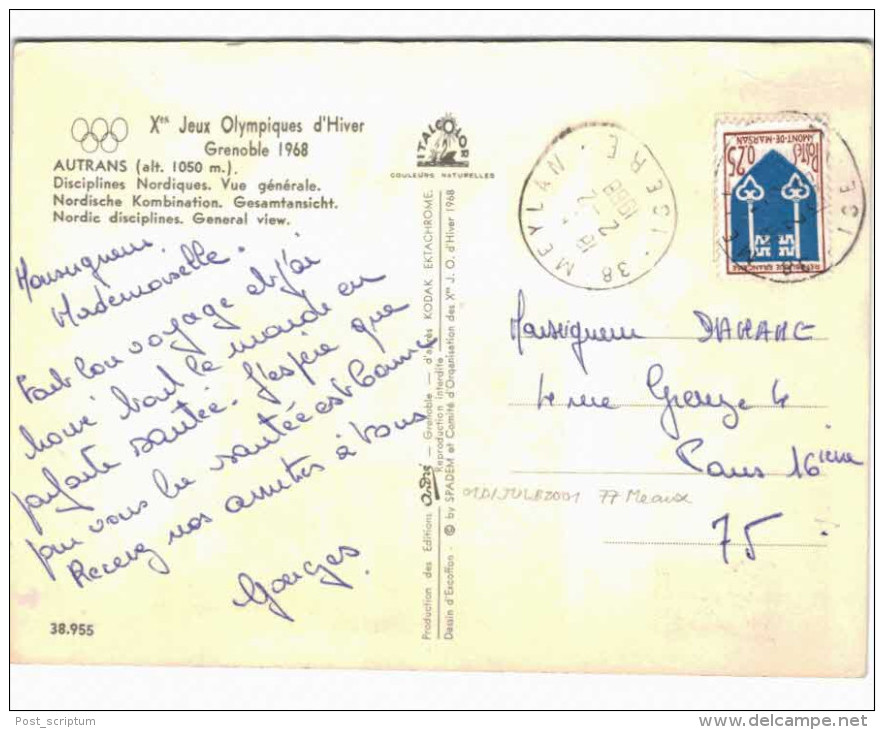 Xes Jeux Olympiques d'Hiver
Grenoble 1968
AUTRANS (alt. 1050 m.).
Disciplines Nordiques. Vue générale.
Nordische Kombination. Gesamtansicht.
Nordic disciplines. General view.
Monseigneur
Mademoiselle.
Fait bon voyage et j'ai
trouvé tout le monde en
parfaite santée. J'espère que
pour vous la santée est bonne
Recevez nos amitiés à tous
Georges.
38.955
ITALCOLOR
COULEURS NATURELLES
Production des Editions André — Grenoble — d'après KODAK EKTACHROME.
Reproduction interdite
Dessin d'Excoffon - © by SPADEM et Comité d'Organisation des Xes J. O. d'Hiver 1968
38 MEYLAN
ISERE
1968
0,25
Postes
MONT-DE-MARSAN
REPUBLIQUE FRANCAISE
Monseigneur
rue Greuze 4
Paris 16ième
75
01D/JUL82001 77 Meaux
Post_scriptum
www.delcampe.net